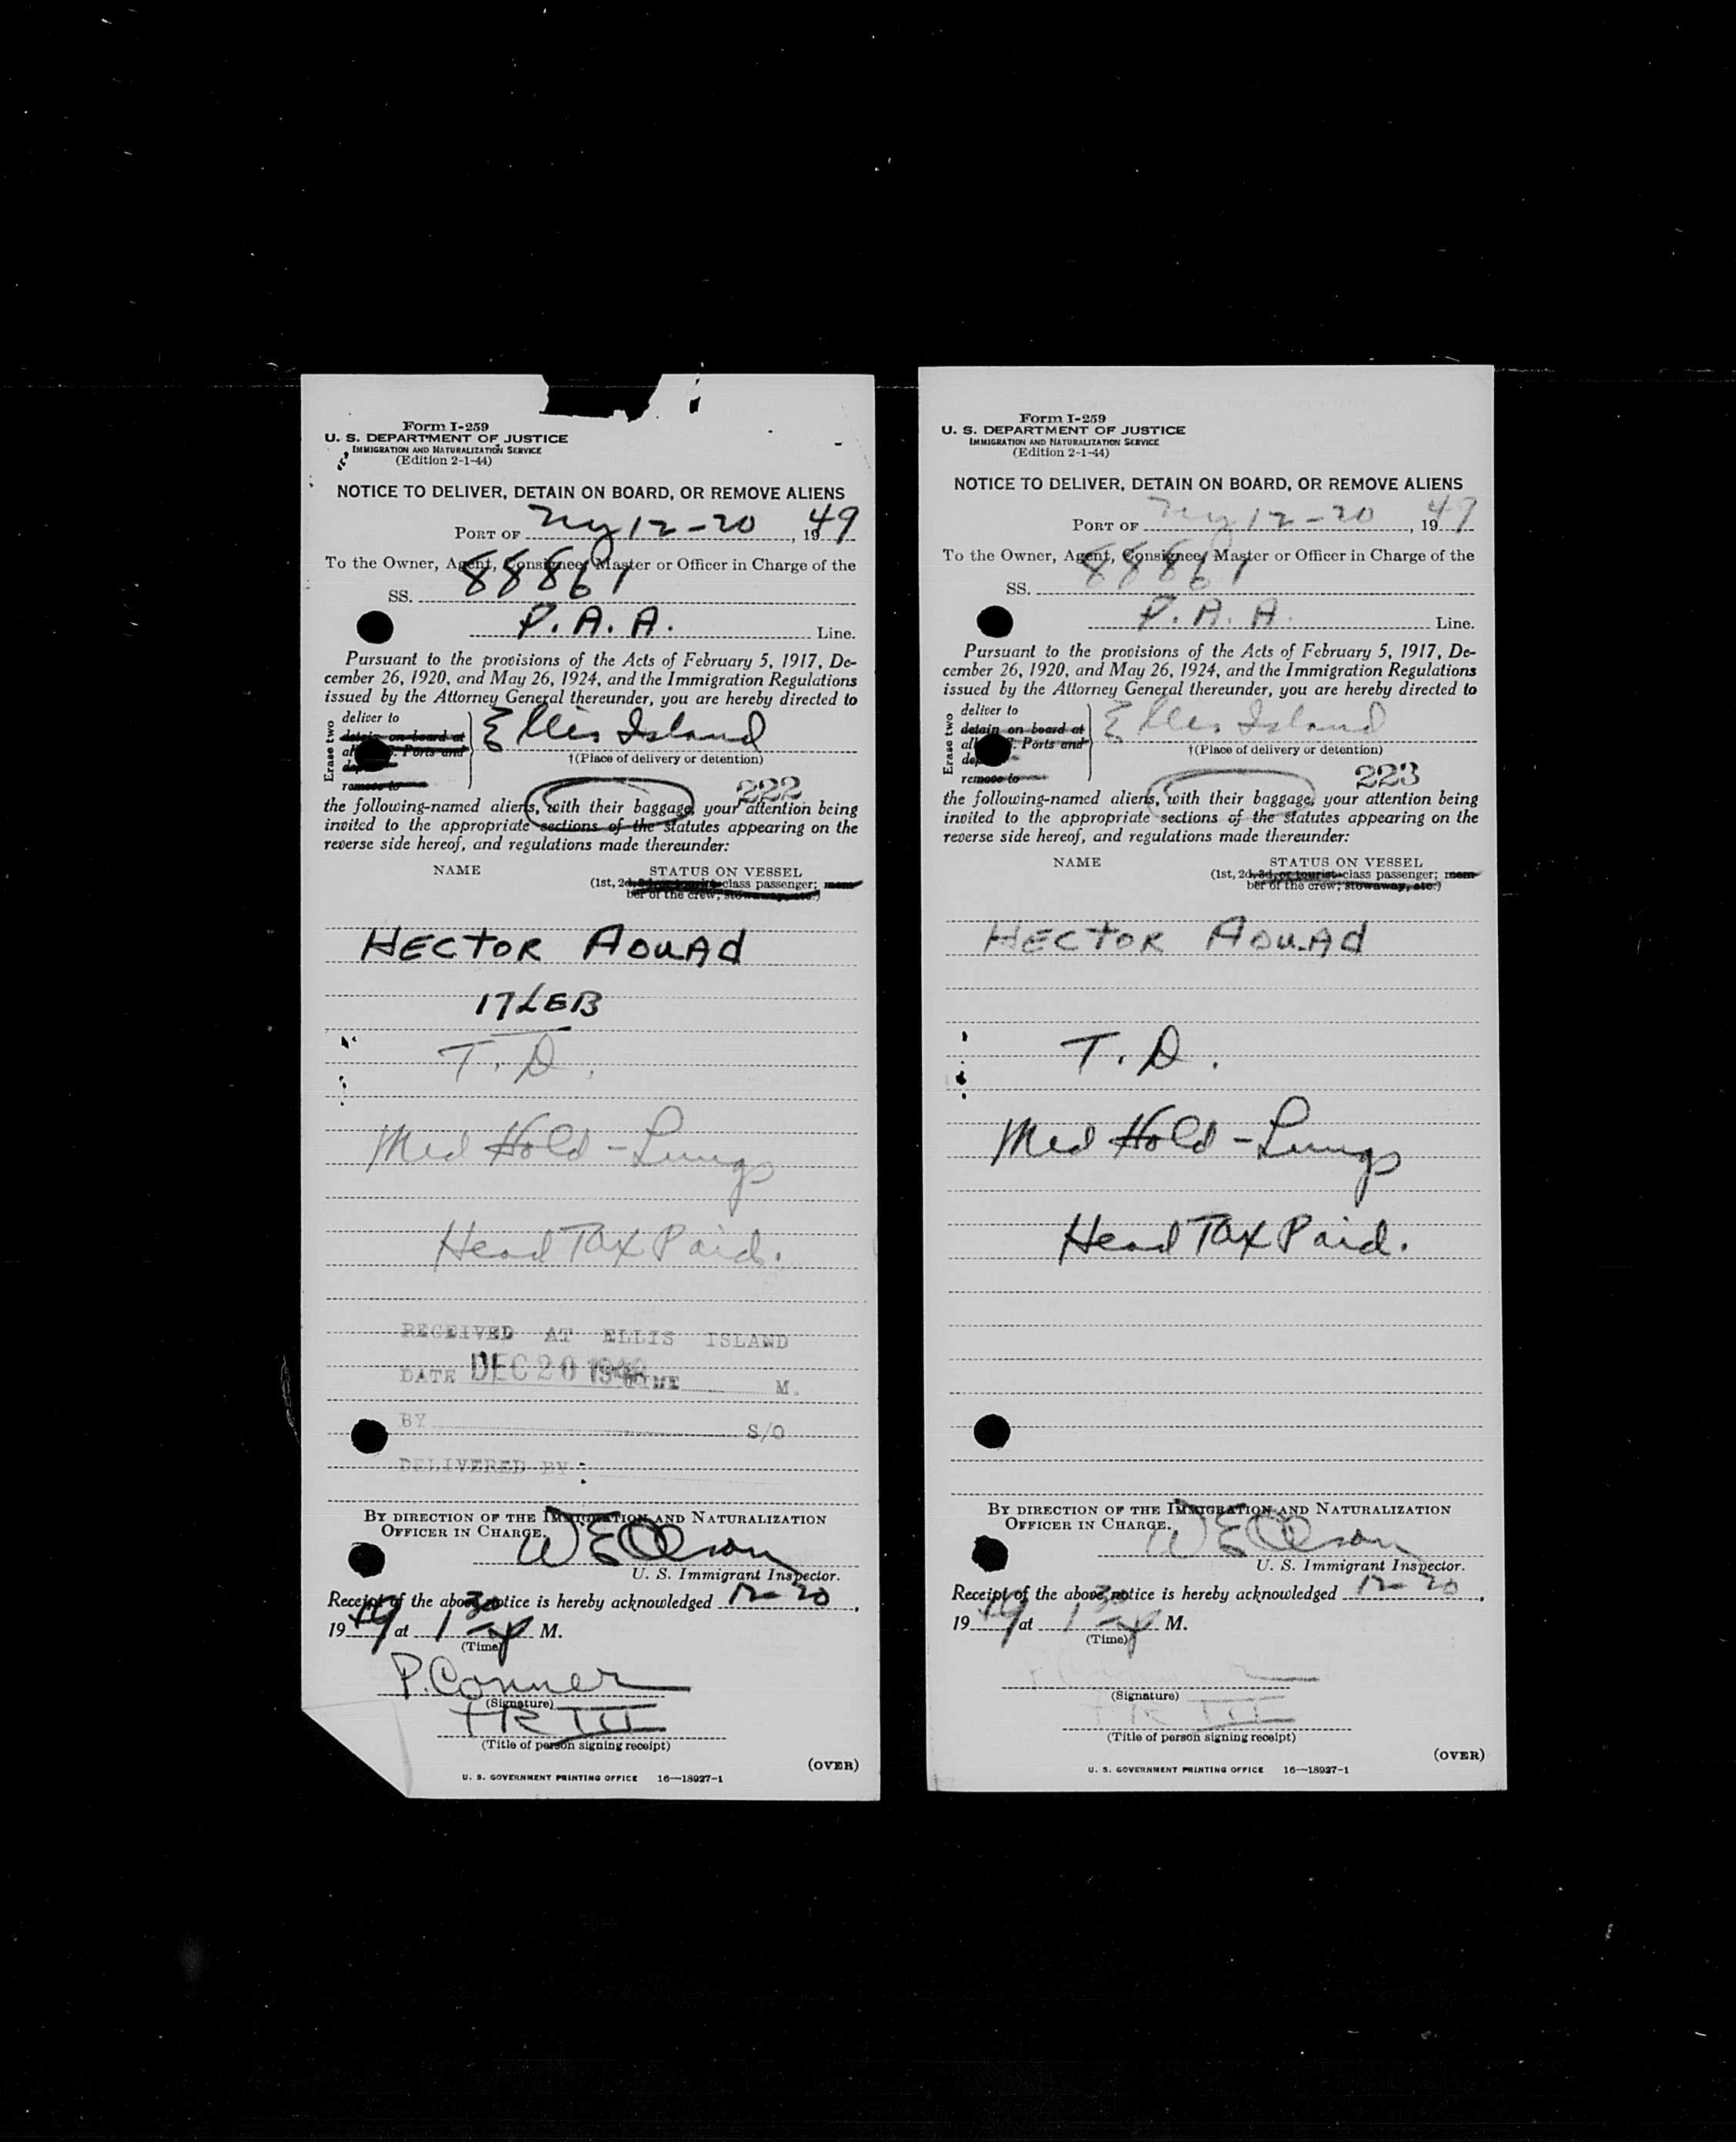 Form I-259
U. S. DEPARTMENT OF JUSTICE
IMMIGRATION AND NATURALIZATION SERVICE
(Edition 2-1-44)
NOTICE TO DELIVER, DETAIN ON BOARD, OR REMOVE ALIENS
PORT OF NY 12-20, 1949
To the Owner, Agent, Consignee, Master or Officer in Charge of the
SS. 88861
P.A.A. Line.
Pursuant to the provisions of the Acts of February 5, 1917, De-
cember 26, 1920, and May 26, 1924, and the Immigration Regulations
issued by the Attorney General thereunder, you are hereby directed to
Erase two
deliver to
detain on board at
Ports and
remove to
Ellis Island
†(Place of delivery or detention)
222
the following-named aliens, with their baggage, your attention being
invited to the appropriate sections of the statutes appearing on the
reverse side hereof, and regulations made thereunder:
NAME STATUS ON VESSEL
(1st, 2d, 3d, or tourist-class passenger; mem-
ber of the crew; stowaway, etc.)
HECTOR AOUAd
17LEB
T. D.
Med Hold - Lungs
Head Tax Paid.
RECEIVED AT ELLIS ISLAND
DATE DEC 20 1949 TIME M.
BY S/O
DELIVERED BY
BY DIRECTION OF THE IMMIGRATION AND NATURALIZATION
OFFICER IN CHARGE.
W E Olson
U. S. Immigrant Inspector.
Receipt of the above notice is hereby acknowledged 12-20,
1949, at 1 30 P M.
(Time)
P. Conner
(Signature)
TR III
(Title of person signing receipt)
(OVER)
U. S. GOVERNMENT PRINTING OFFICE 16—18927-1
Form I-259
U. S. DEPARTMENT OF JUSTICE
IMMIGRATION AND NATURALIZATION SERVICE
(Edition 2-1-44)
NOTICE TO DELIVER, DETAIN ON BOARD, OR REMOVE ALIENS
PORT OF NY 12-20, 1949
To the Owner, Agent, Consignee, Master or Officer in Charge of the
SS. 88861
P.A.A. Line.
Pursuant to the provisions of the Acts of February 5, 1917, De-
cember 26, 1920, and May 26, 1924, and the Immigration Regulations
issued by the Attorney General thereunder, you are hereby directed to
Erase two
deliver to
detain on board at
Ports and
remove to
Ellis Island
†(Place of delivery or detention)
223
the following-named aliens, with their baggage, your attention being
invited to the appropriate sections of the statutes appearing on the
reverse side hereof, and regulations made thereunder:
NAME STATUS ON VESSEL
(1st, 2d, 3d, or tourist-class passenger; mem-
ber of the crew; stowaway, etc.)
HECTOR AOUAd
T. D.
Med Hold - Lungs
Head Tax Paid.
BY DIRECTION OF THE IMMIGRATION AND NATURALIZATION
OFFICER IN CHARGE.
W E Olson
U. S. Immigrant Inspector.
Receipt of the above notice is hereby acknowledged 12-20,
1949, at 1 30 P M.
(Time)
P. Conner
(Signature)
TR III
(Title of person signing receipt)
(OVER)
U. S. GOVERNMENT PRINTING OFFICE 16—18927-1